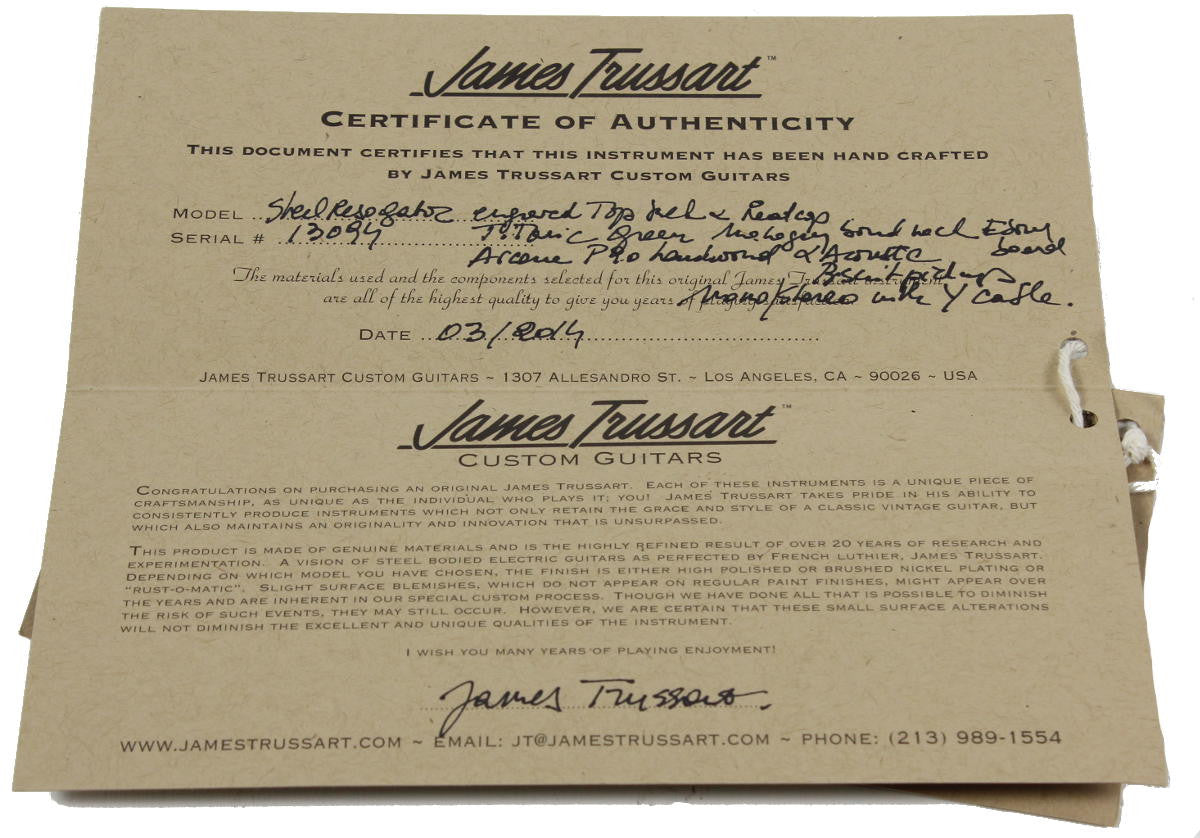 James Trussart™
CERTIFICATE OF AUTHENTICITY
THIS DOCUMENT CERTIFIES THAT THIS INSTRUMENT HAS BEEN HAND CRAFTED
BY JAMES TRUSSART CUSTOM GUITARS
MODEL Steel Resogator engraved Top &
SERIAL # 13094 Titanic Green Mahogany neck Ebony
Arcane P90 handwound & Acoustic board
The materials used and the components selected for this original James Trussart instrument
Biscuit pickups
are all of the highest quality to give you years of playing satisfaction
Mono/stereo with Y cable.
DATE 03/2014
JAMES TRUSSART CUSTOM GUITARS ~ 1307 ALLESANDRO ST. ~ LOS ANGELES, CA ~ 90026 ~ USA
James Trussart™
CUSTOM GUITARS
CONGRATULATIONS ON PURCHASING AN ORIGINAL JAMES TRUSSART. EACH OF THESE INSTRUMENTS IS A UNIQUE PIECE OF
CRAFTSMANSHIP, AS UNIQUE AS THE INDIVIDUAL WHO PLAYS IT; YOU! JAMES TRUSSART TAKES PRIDE IN HIS ABILITY TO
CONSISTENTLY PRODUCE INSTRUMENTS WHICH NOT ONLY RETAIN THE GRACE AND STYLE OF A CLASSIC VINTAGE GUITAR, BUT
WHICH ALSO MAINTAINS AN ORIGINALITY AND INNOVATION THAT IS UNSURPASSED.
THIS PRODUCT IS MADE OF GENUINE MATERIALS AND IS THE HIGHLY REFINED RESULT OF OVER 20 YEARS OF RESEARCH AND
EXPERIMENTATION. A VISION OF STEEL BODIED ELECTRIC GUITARS AS PERFECTED BY FRENCH LUTHIER, JAMES TRUSSART.
DEPENDING ON WHICH MODEL YOU HAVE CHOSEN, THE FINISH IS EITHER HIGH POLISHED OR BRUSHED NICKEL PLATING OR
"RUST-O-MATIC". SLIGHT SURFACE BLEMISHES, WHICH DO NOT APPEAR ON REGULAR PAINT FINISHES, MIGHT APPEAR OVER
THE YEARS AND ARE INHERENT IN OUR SPECIAL CUSTOM PROCESS. THOUGH WE HAVE DONE ALL THAT IS POSSIBLE TO DIMINISH
THE RISK OF SUCH EVENTS, THEY MAY STILL OCCUR. HOWEVER, WE ARE CERTAIN THAT THESE SMALL SURFACE ALTERATIONS
WILL NOT DIMINISH THE EXCELLENT AND UNIQUE QUALITIES OF THE INSTRUMENT.
I WISH YOU MANY YEARS OF PLAYING ENJOYMENT!
James Trussart.
WWW.JAMESTRUSSART.COM ~ EMAIL: JT@JAMESTRUSSART.COM ~ PHONE: (213) 989-1554